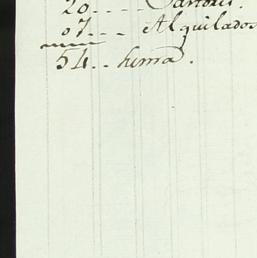 20....
07... Alquilados
54.. Suma.